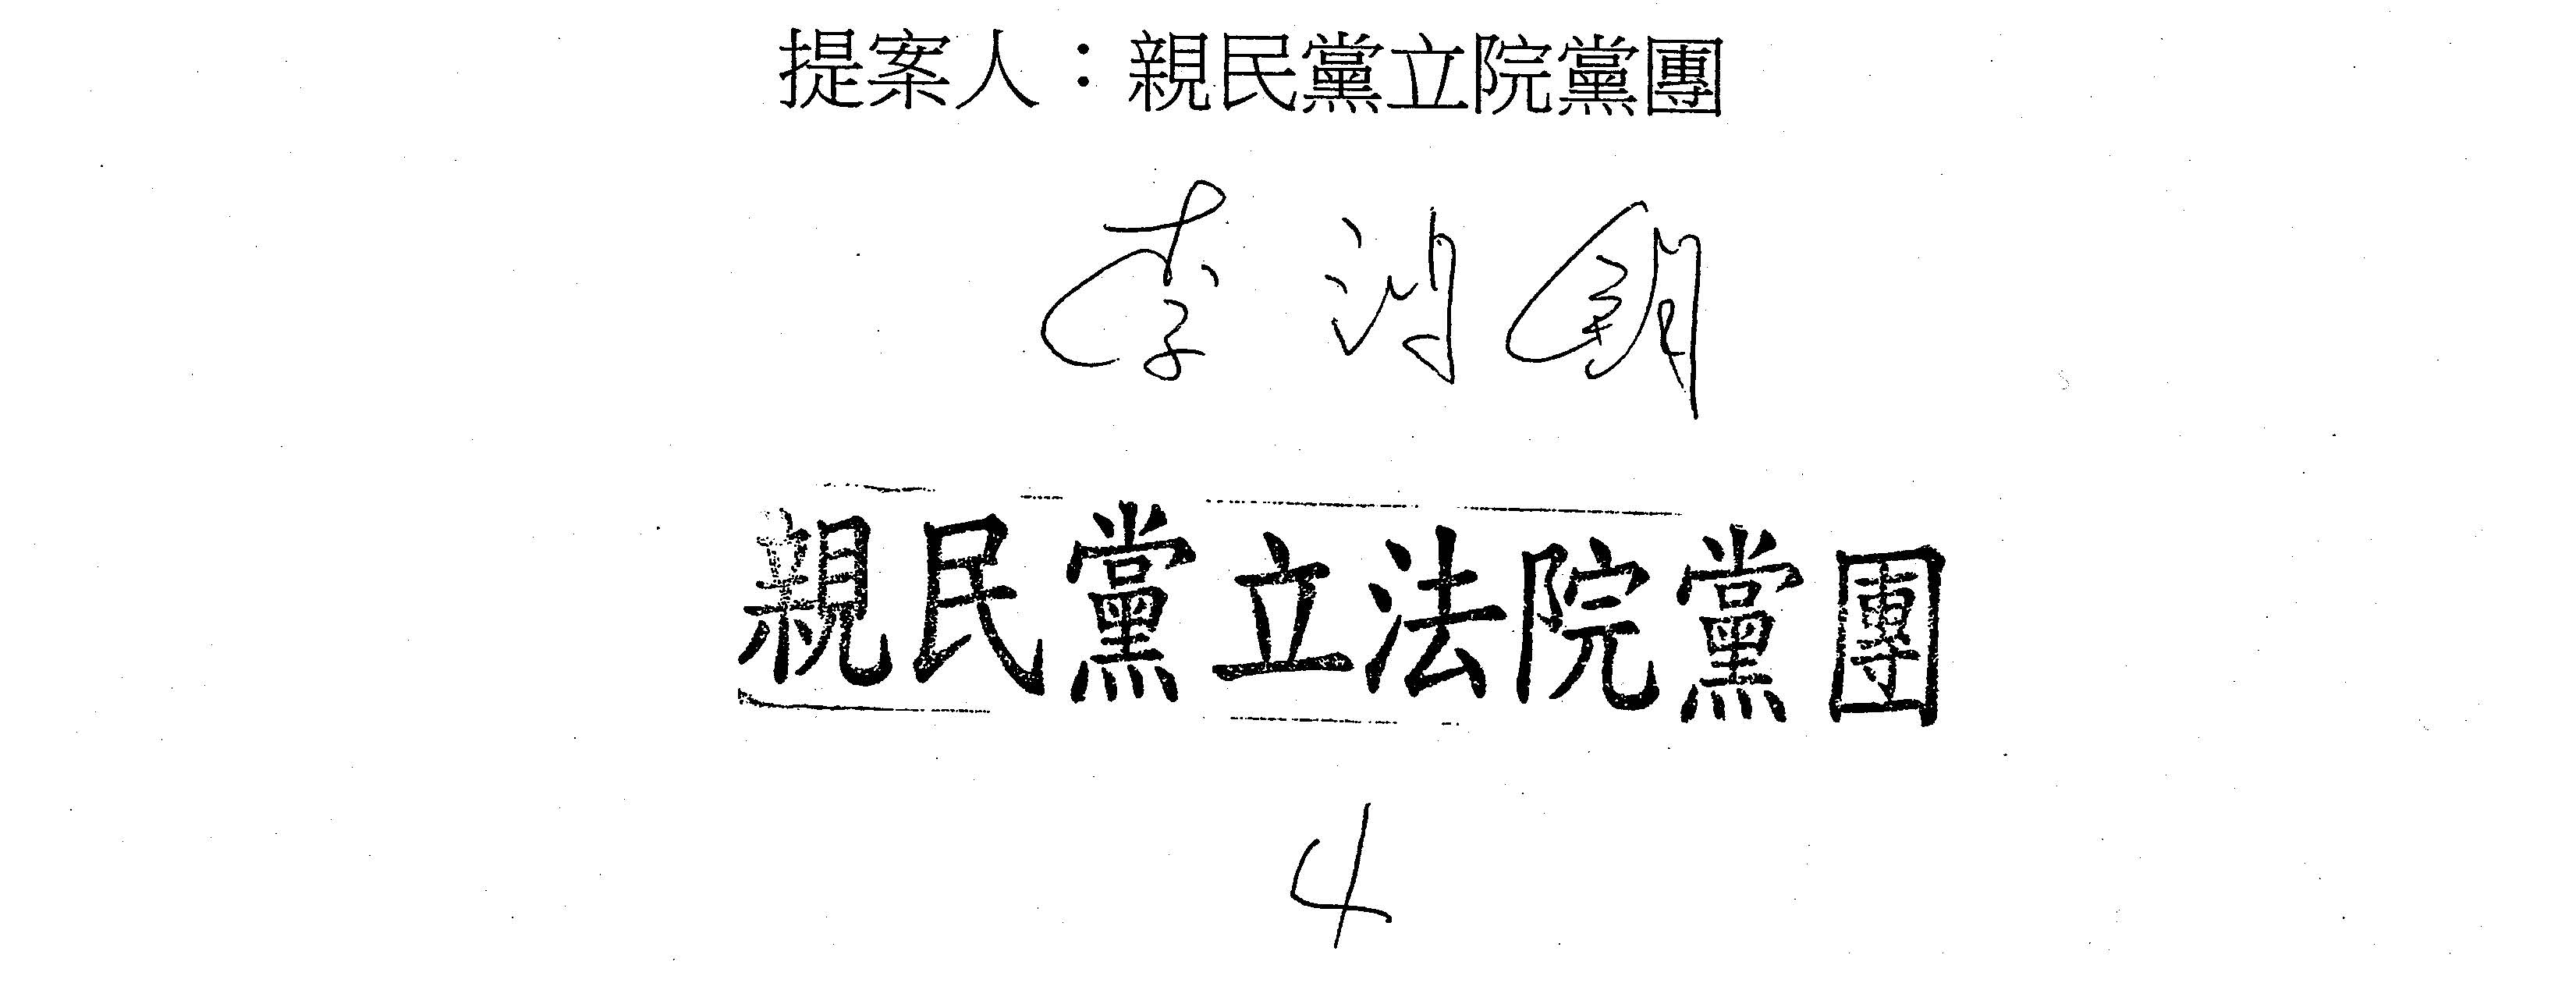 提案人：親民黨立院黨團
李鴻鈞
親民黨立法院黨團
4